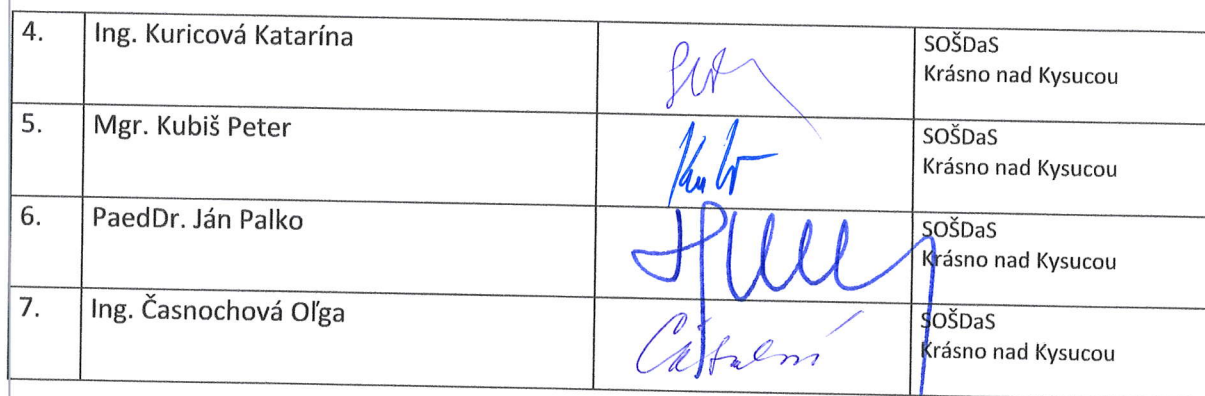 4. Ing. Kuricová Katarína SOŠDaS
Krásno nad Kysucou
5. Mgr. Kubiš Peter SOŠDaS
Krásno nad Kysucou
6. PaedDr. Ján Palko SOŠDaS
Krásno nad Kysucou
7. Ing. Časnochová Oľga SOŠDaS
Krásno nad Kysucou